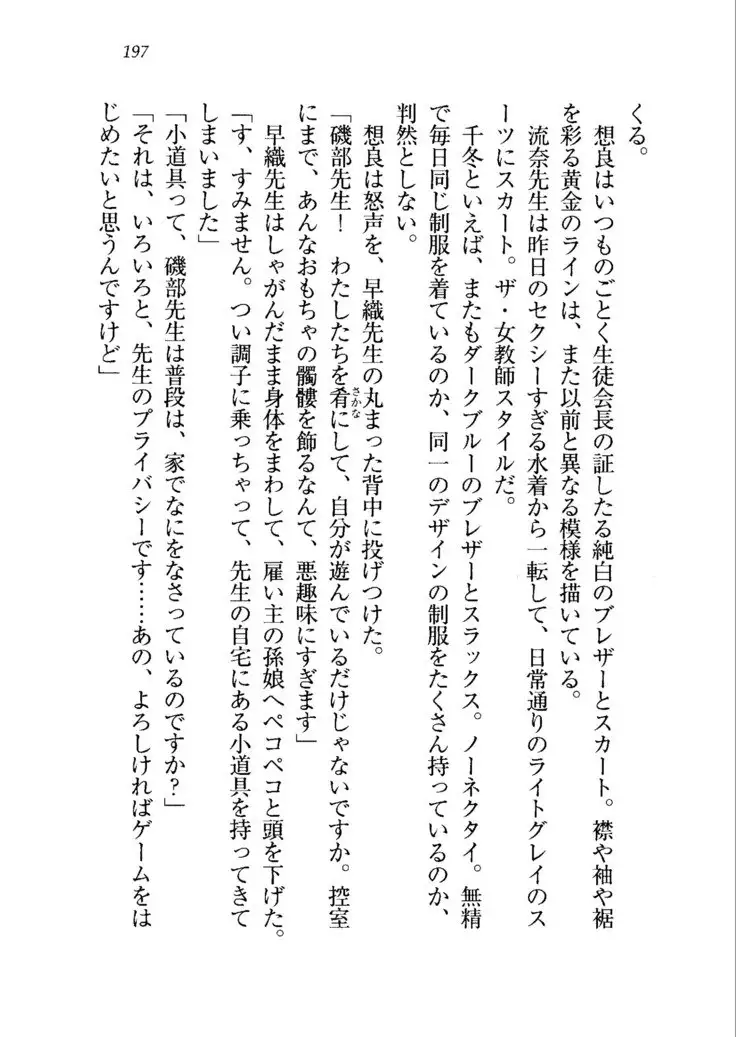 197
くる。
　想良はいつものごとく生徒会長の証したる純白のブレザーとスカート。襟や袖や裾
を彩る黄金のラインは、また以前と異なる模様を描いている。
　流奈先生は昨日のセクシーすぎる水着から一転して、日常通りのライトグレイのス
ーツにスカート。ザ・女教師スタイルだ。
　千冬といえば、またもダークブルーのブレザーとスラックス。ノーネクタイ。無精
で毎日同じ制服を着ているのか、同一のデザインの制服をたくさん持っているのか、
判然としない。
　想良は怒声を、早織先生の丸まった背中に投げつけた。
「磯部先生！　わたしたちを肴にして、自分が遊んでいるだけじゃないですか。控室
さかな
にまで、あんなおもちゃの髑髏を飾るなんて、悪趣味にすぎます」
　早織先生はしゃがんだまま身体をまわして、雇い主の孫娘へペコペコと頭を下げた。
「す、すみません。つい調子に乗っちゃって、先生の自宅にある小道具を持ってきて
しまいました」
「小道具って、磯部先生は普段は、家でなにをなさっているのですか？」
「それは、いろいろと、先生のプライバシーです……あの、よろしければゲームをは
じめたいと思うんですけど」